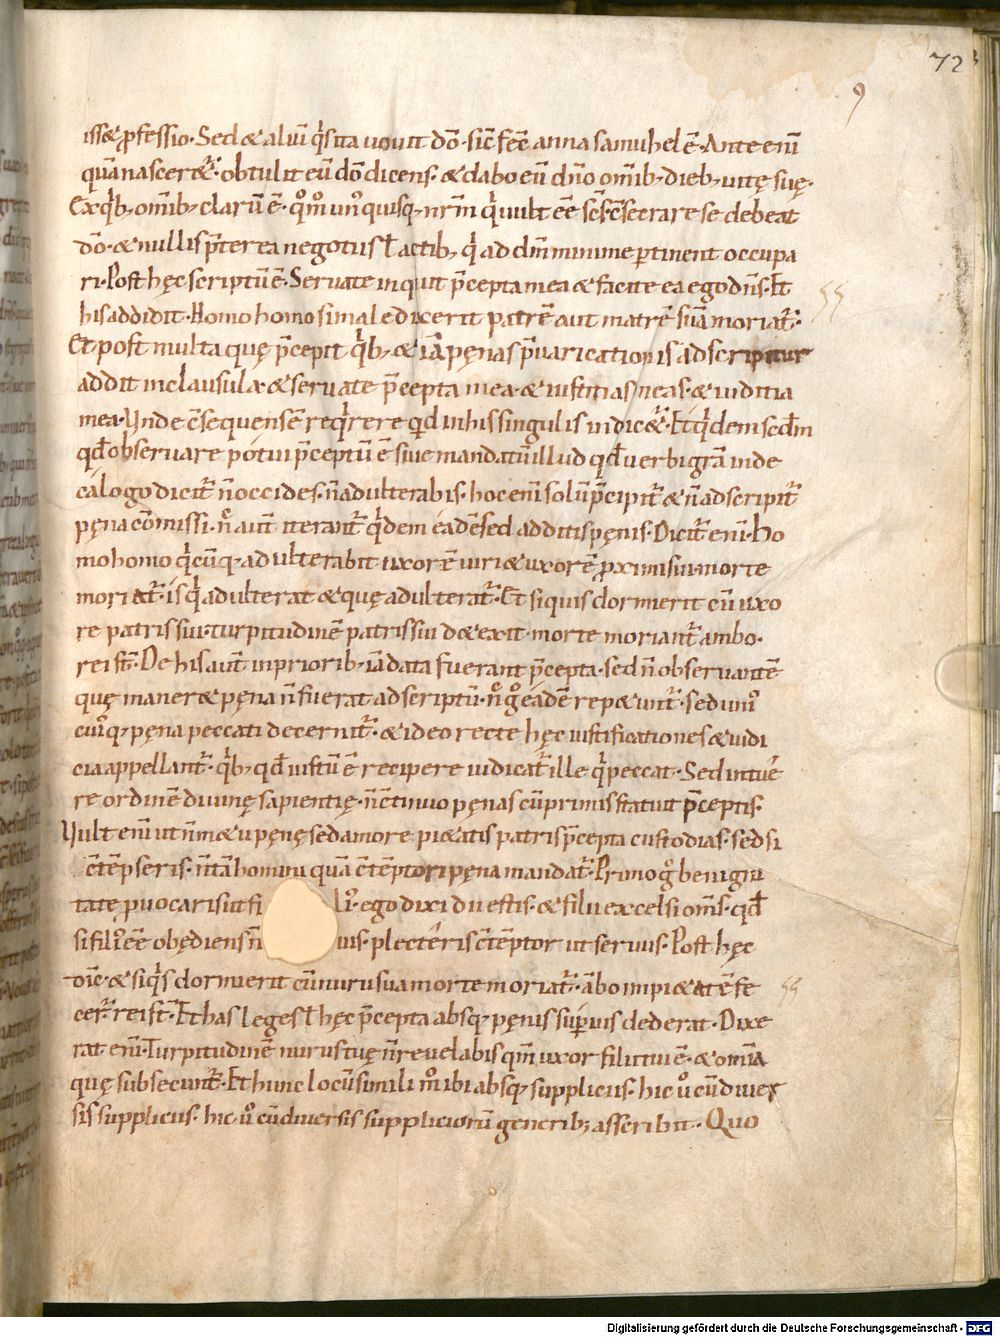 72
9
iss& ꝓfessio. Sed & aliū q̇sita uouit dō. sic̄ fec̄ anna samuhelē. Ante enī
quā nascer&ur. obtulit eū dō dicens. & dabo eū dn̄o omīb; dieb; uitę suę.
Ex q̇b; omīb; clarū ē. qm̄ unusquisq; nr̄m q̇ uult eē sc̄s c̄secrare se debeat
dō. & nullis p̄terea negotiis ł actib; q̇ ad dm̄ minime ꝑtinent occupa
ri. Post hęc scriptū ē. Seruate inquit p̄cepta mea & facite ea ego dn̄s. Et
his addidit. Homo homo si maledixerit patrē aut matrē suā moriat̄.
Et post multa quę p̄cepit q̇b; & iā pęnas p̄uaricationis adscripitur
addit in clausula. & seruate p̄cepta mea. & iustitias meas. & iuditia
mea. Unde c̄sequens ē req̇rere qd̄ in his singulis indic&ur. Et q̇dem scd̄m
qd̄ obseruare potui p̄ceptū ē siue mandatū illud qd̄ uerbi grā in de
calogo dicit̄ n̄ occides. n̄ adulterabis. hoc enī solū p̄cipit̄ & n̄ adscribit̄
pęna cōmissi. nc̄ aut̄ iterant̄ q̇dem eadē sed additis pęnis. Dicit̄ enī. Ho
mo homo q̇cūq; adulterabit uxorē uiri & uxorē ꝓximi sui. morte
moriat̄. is q̇ adulterat & quę adulterat̄. Et siquis dormierit cū uxo
re patris sui. turpitudinē patris sui d&exit. morte moriant̄ ambo.
rei st̄. De his aut̄ in priorib; iā data fuerant p̄cepta. sed n̄ obseruantē
quę maner& pęna n̄ fuerat adscriptū. nc̄ g̊ eadē rep&unt̄. sed uni
cuiq; pęna peccati decernit̄. & ideo recte hęc iustificationes & iudi
cia appellant̄. q̇b; qd̄ iustū ē recipere iudicat̄ ille q̇ peccat. Sed intuē
re ordinē diuinę sapientię. n̄ c̄tinuo pęnas cū primis statuit p̄ceptis.
Uult enī ut n̄ m&u pęnę sed amore pi&atis patris p̄cepta custodias. sed si
c̄tēpseris. n̄ tā homini quā c̄tēptori pęna mandat̄. Primo g̊ benigni
tate ꝓuocaris ut fi li'. ego dixi dii estis. & filii excelsi om̄s. qd̄
si fili' eē obędiens n̄ uis. plecteris c̄tēptor ut seruus. Post hęc
oīē. & siq̇s dormierit cū nuru sua morte moriat̄. ābo impi&atē fe
cer̄. rei st̄. Et has leges ł hęc p̄cepta absq; pęnis supius dederat. Dixe
rat enī. Turpitudinē nurus tuę n̄ reuelabis qm̄ uxor filii tui ē. & omīa
quę subsecunt̄. Et hunc locū simili m̊ ibi absq; suppliciis. hic u̅ cū diuer
sis suppliciis. hic u̅ cū diuersis suppliciorū generib; asseribit. Quo
Digitalisierung gefördert durch die Deutsche Forschungsgemeinschaft - DFG